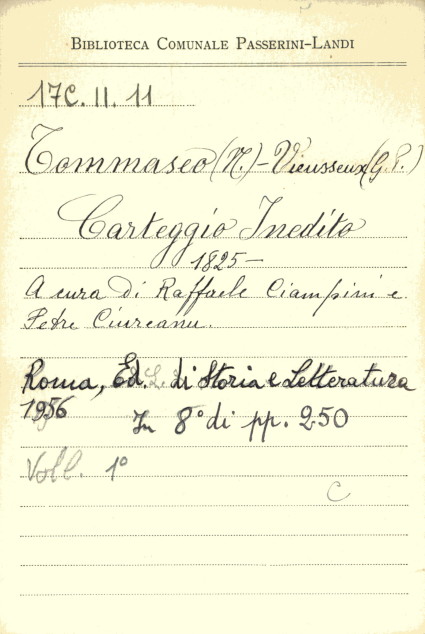 BIBLIOTECA COMUNALE PASSERINI-LANDI
17C. II. 11
Tommaseo (N.) - Vieusseux (G.P.)
Carteggio Inedito
1825-
A cura di Raffaele Ciampini e
Petre Ciureanu.
Roma, Ed. di Storia e Letteratura
1956 In 8° di pp. 250
Voll. 1°
C